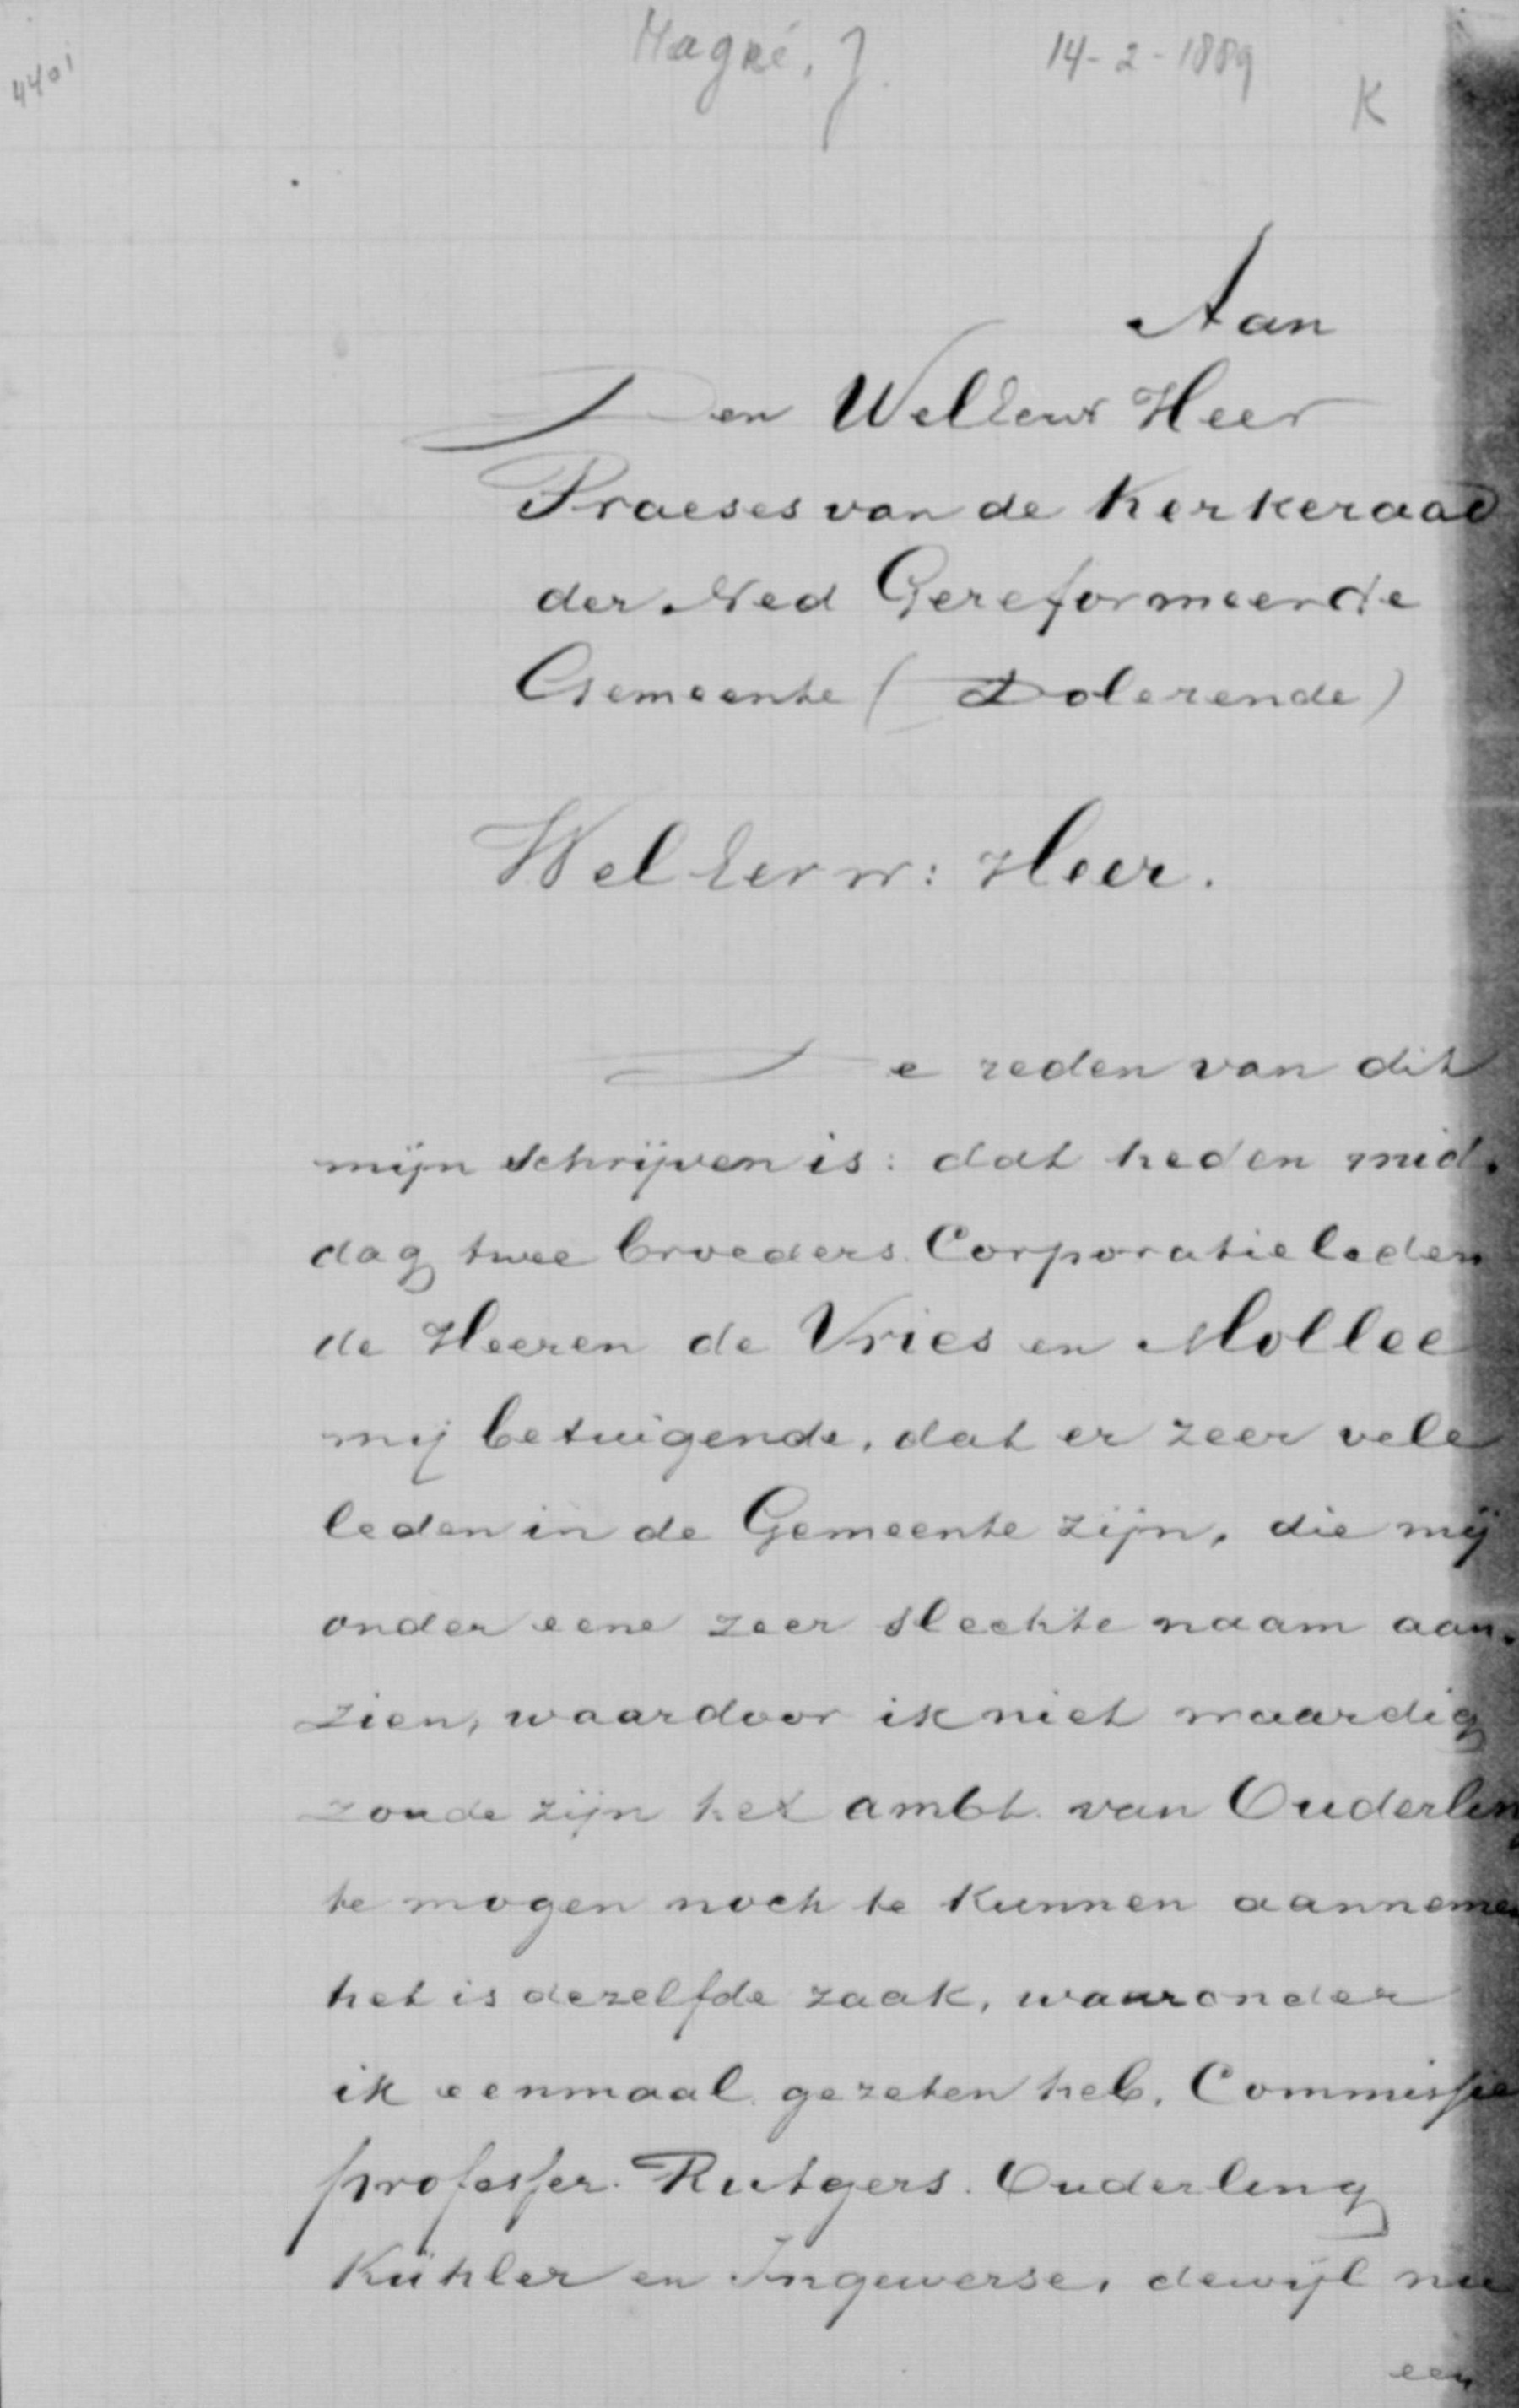 4401
Magré, J.
14-2-1889
K
Aan
Den WelEerw Heer
Praeses van de Kerkeraad
der Ned Gereformeerde
Gemeente (Dolerende)
WelEerw: Heer.
De reden van dit
mijn schrijven is: dat heden mid-
dag twee broeders Corporatieleden
de Heeren de Vries en Mollee
mij betuigende, dat er zeer vele
leden in de Gemeente zijn, die mij
onder eene zeer slechte naam aan-
zien, waardoor ik niet waardig
zoude zijn het ambt van Ouderling
te mogen noch te kunnen aannemen
het is dezelfde zaak, waaronder
ik eenmaal gezeten heb, Commissie
professer Rutgers. Ouderling
Kühler en Ingewerse, dewijl nu
een